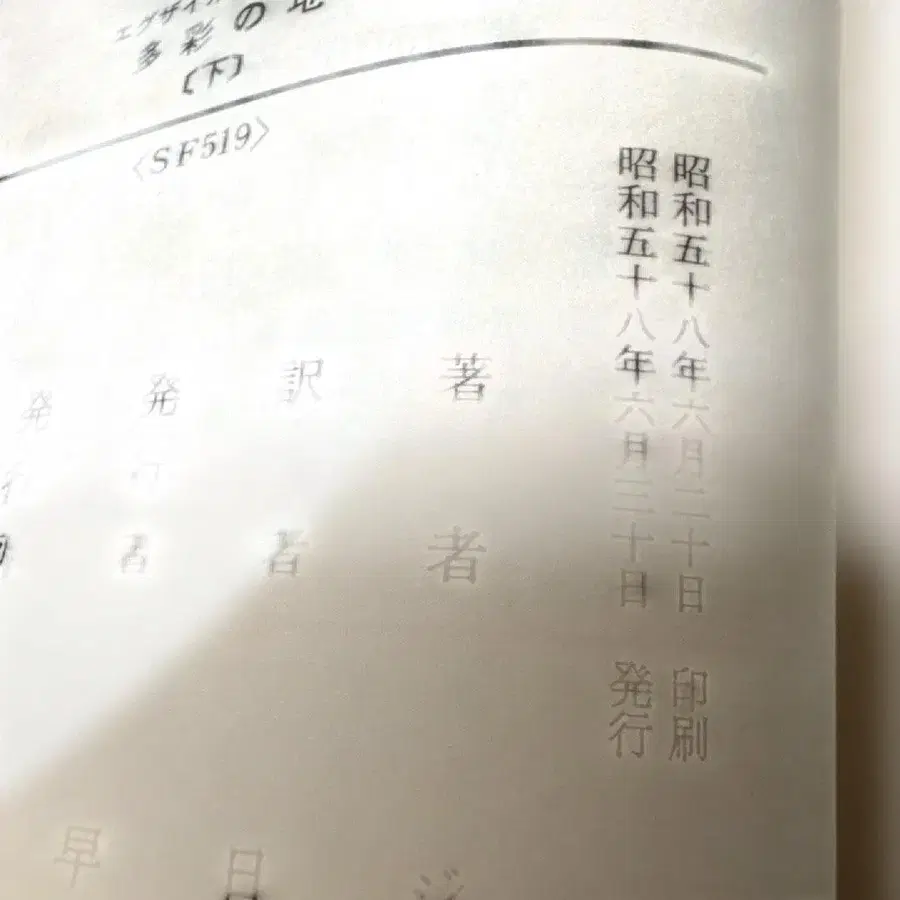 エグザイル
多彩の地
〔下〕
〈SF519〉
昭和五十八年六月二十日 印刷
昭和五十八年六月三十日 発行
著者
訳者
発行者
発行
早